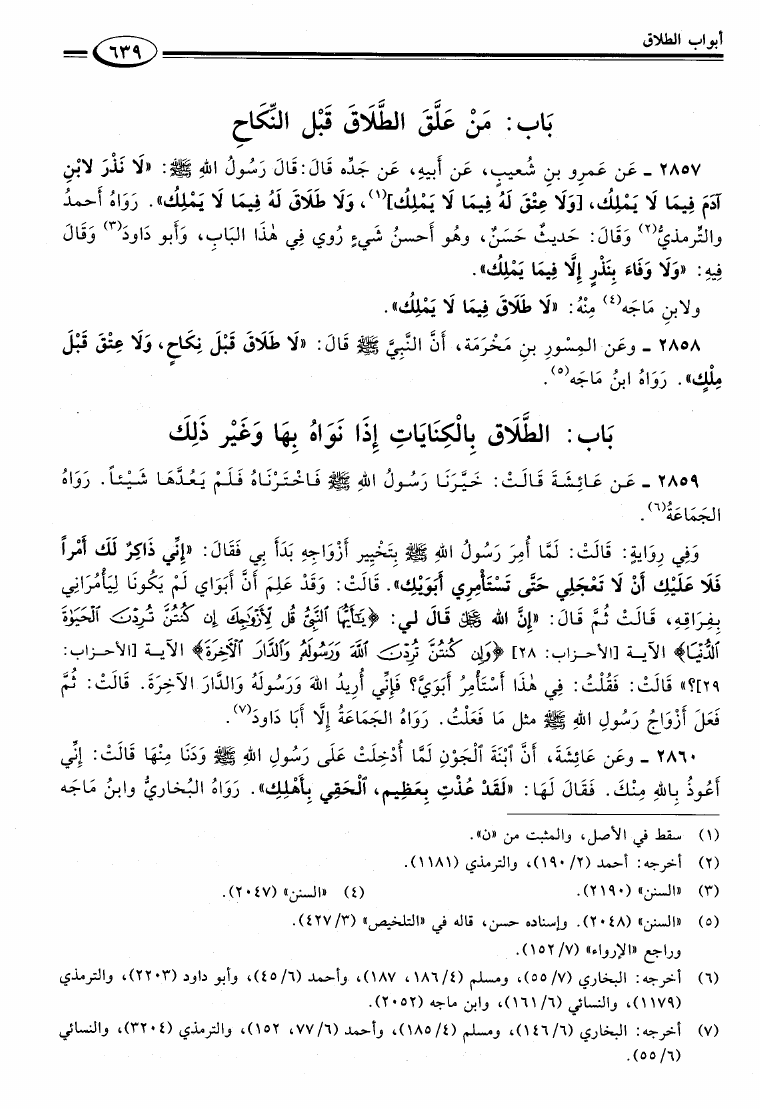 أبواب الطلاق
٦٣٩
بَاب: مَنْ عَلَّقَ الطَّلَاقَ قَبْلَ النِّكَاحِ
٢٨٥٧ ـ عَن عَمرِو بنِ شُعيبٍ، عَن أَبيهِ، عَن جَدِّه قَالَ: قَالَ رَسُولُ اللهِ ﷺ: «لَا نَذْرَ لابْنِ
آدَمَ فِيمَا لَا يَمْلِكُ، [وَلَا عِتْقَ لَهُ فِيمَا لَا يَمْلِكُ](١)، وَلَا طَلَاقَ لَهُ فِيمَا لَا يَمْلِكُ». رَوَاهُ أَحمدُ
والتِّرمذيُّ(٢) وَقَالَ: حَديثٌ حَسَنٌ، وهُو أَحسنُ شَيءٍ رُوي فِي هٰذَا البَابِ، وَأَبو دَاودَ(٣) وَقَالَ
فِيهِ: «وَلَا وَفَاءَ بِنَذْرٍ إِلَّا فِيمَا يَمْلِكُ».
ولابنِ مَاجَه(٤) مِنْهُ: «لَا طَلَاقَ فِيمَا لَا يَمْلِكُ».
٢٨٥٨ ـ وعَن المِسْورِ بنِ مَخْرَمَة، أَنَّ النَّبِيَّ ﷺ قَالَ: «لَا طَلَاقَ قَبْلَ نِكَاحٍ، وَلَا عِتْقَ قَبْلَ
مِلْكٍ». رَوَاهُ ابنُ مَاجَه(٥).
بَاب: الطَّلَاق بِالْكِنَايَاتِ إِذَا نَوَاهُ بِهَا وَغَيْر ذَلِكَ
٢٨٥٩ ـ عَن عَائِشَةَ قَالَتْ: خَيَّرَنَا رَسُولُ اللهِ ﷺ فَاخْتَرْنَاهُ فَلَمْ يَعُدَّهَا شَيْئاً. رَوَاهُ
الجَمَاعَةُ(٦).
وَفِي رِوَايَةٍ: قَالَتْ: لَمَّا أُمِرَ رَسُولُ اللهِ ﷺ بِتَخْيِيرِ أَزْوَاجِهِ بَدَأَ بِي فَقَالَ: «إِنِّي ذَاكِرٌ لَكِ أَمْراً
فَلَا عَلَيْكِ أَنْ لَا تَعْجَلِي حَتَّى تَسْتَأْمِرِي أَبَوَيْكِ». قَالَتْ: وَقَدْ عَلِمَ أَنَّ أَبَوَاي لَمْ يَكُونَا لِيَأْمُرَانِي
بِفِرَاقِهِ، قَالَتْ ثُمَّ قَالَ: «إِنَّ الله ﷻ قَالَ لي: ﴿يَـٰٓأَيُّهَا ٱلنَّبِىُّ قُل لِّأَزْوَٰجِكَ إِن كُنتُنَّ تُرِدْنَ ٱلْحَيَوٰةَ
ٱلدُّنْيَا﴾ الآيـة [الأحـزاب: ٢٨] ﴿وَإِن كُنتُنَّ تُرِدْنَ ٱللَّهَ وَرَسُولَهُۥ وَٱلدَّارَ ٱلْءَاخِرَةَ﴾ الآيـة [الأحـزاب:
٢٩]؟» قَالَتْ: فَقُلْتُ: فِي هٰذَا أَسْتَأْمِرُ أَبَوَيَّ؟ فَإِنِّي أُرِيدُ اللهَ وَرَسُولَهُ وَالدَّارَ الآخِرَةَ. قَالَتْ: ثُمَّ
فَعَلَ أَزْوَاجُ رَسُولِ اللهِ ﷺ مثل مَا فَعَلْتُ. رَوَاهُ الجَمَاعَةُ إِلَّا أَبَا دَاودَ(٧).
٢٨٦٠ ـ وعَن عَائِشَةَ، أَنَّ ٱبْنَةَ ٱلْجَوْنِ لَمَّا أُدْخِلَتْ عَلَى رَسُولِ اللهِ ﷺ وَدَنَا مِنْهَا قَالَتْ: إِنِّي
أَعُوذُ بِاللهِ مِنْكَ. فَقَالَ لَهَا: «لَقَدْ عُذْتِ بِعَظِيمٍ، ٱلْحَقِي بِأَهْلِكِ». رَوَاهُ البُخاريُّ وابنُ مَاجَه
(١) سقط في الأصل، والمثبت من «ن».
(٢) أخرجه: أحمد (٢/ ١٩٠)، والترمذي (١١٨١).
(٣) «السنن» (٢١٩٠). (٤) «السنن» (٢٠٤٧).
(٥) «السنن» (٢٠٤٨). وإسناده حسن، قاله في «التلخيص» (٣/ ٤٢٧).
وراجع «الإرواء» (٧/ ١٥٢).
(٦) أخرجه: البخاري (٧/ ٥٥)، ومسلم (٤/ ١٨٦، ١٨٧)، وأحمد (٦/ ٤٥)، وأبو داود (٢٢٠٣)، والترمذي
(١١٧٩)، والنسائي (٦/ ١٦١)، وابن ماجه (٢٠٥٢).
(٧) أخرجه: البخاري (٦/ ١٤٦)، ومسلم (٤/ ١٨٥)، وأحمد (٦/ ٧٧، ١٥٢)، والترمذي (٣٢٠٤)، والنسائي
(٦/ ٥٥).